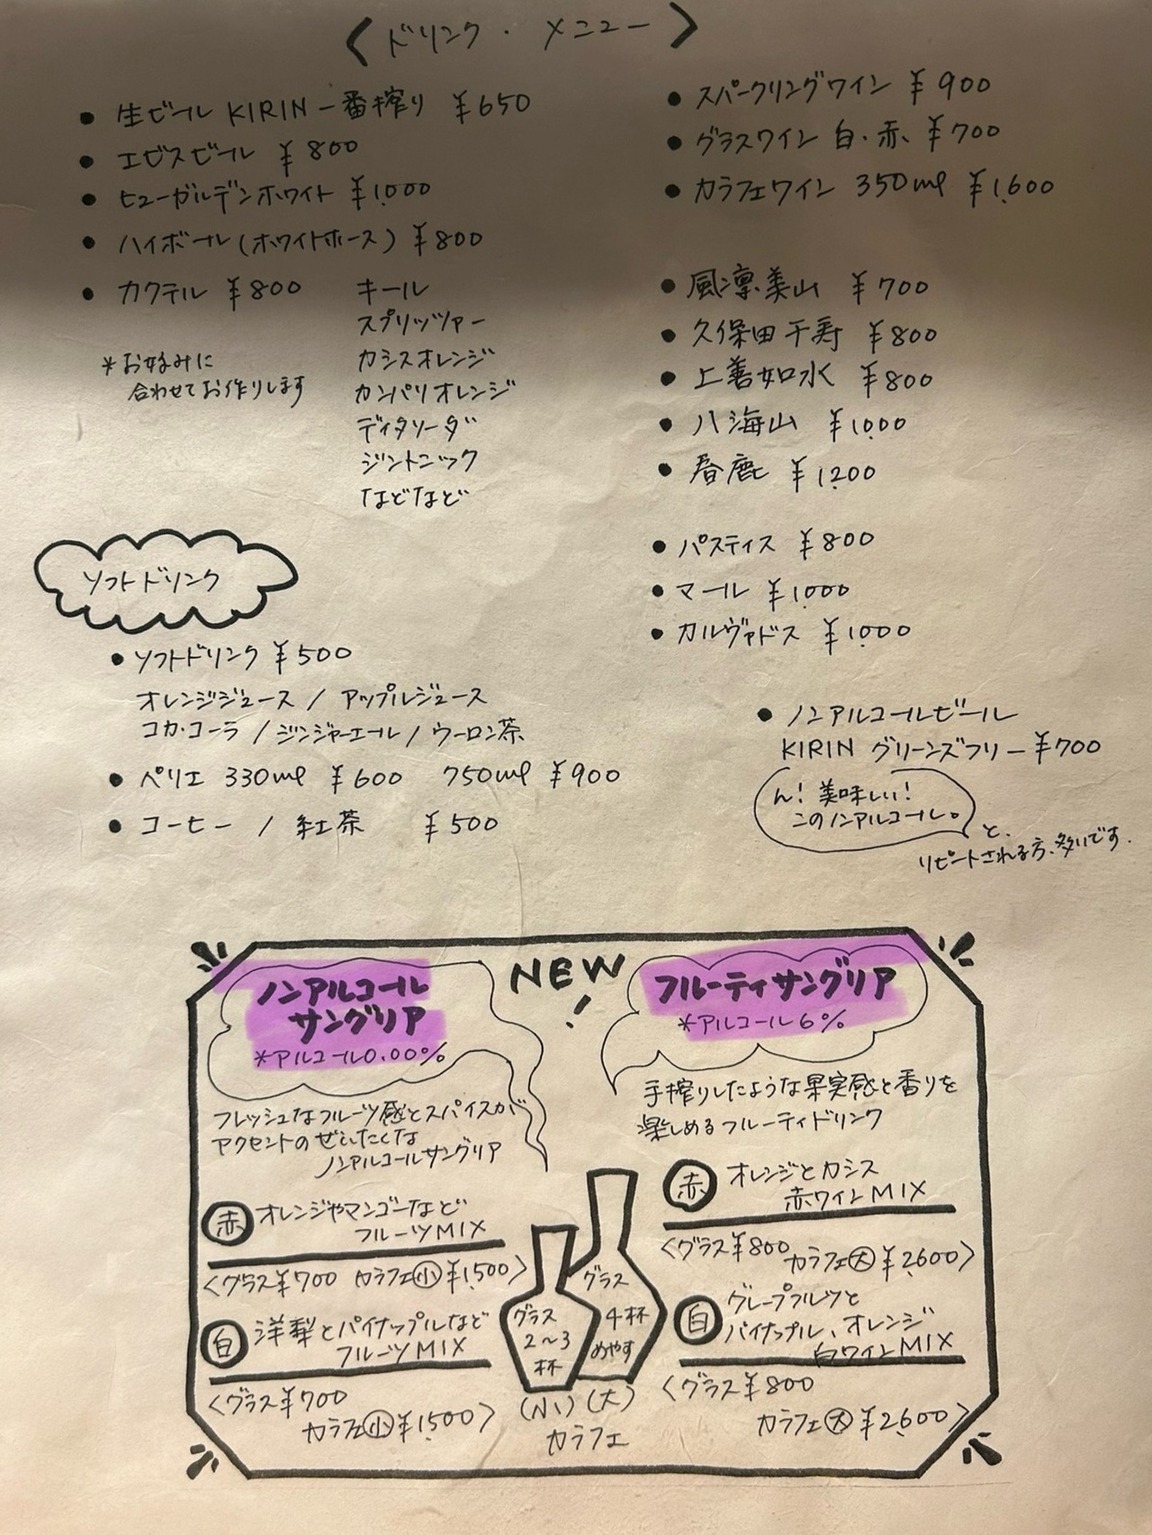 〈ドリンク・メニュー〉
• 生ビール KIRIN 一番搾り ¥650
• エビスビール ¥800
• ヒューガルデンホワイト ¥1,000
• ハイボール(ホワイトホース) ¥800
• カクテル ¥800 キール
スプリッツァー
カシスオレンジ
カンパリオレンジ
ディタソーダ
ジントニック
などなど
*お好みに
合わせてお作りします
• スパークリングワイン ¥900
• グラスワイン 白・赤、¥700
• カラフェワイン 350ml ¥1,600
• 風凛美山 ¥700
• 久保田千寿 ¥800
• 上善如水 ¥800
• 八海山 ¥1,000
• 春鹿 ¥1,200
• パスティス ¥800
• マール ¥1,000
• カルヴァドス ¥1,000
ソフトドリンク
• ソフトドリンク ¥500
オレンジジュース / アップルジュース
コカ・コーラ / ジンジャーエール / ウーロン茶
• ペリエ 330ml ¥600 750ml ¥900
• コーヒー / 紅茶 ¥500
• ノンアルコールビール
KIRIN グリーンズフリー ¥700
ん！美味しい！
このノンアルコール。
と、
リピートされる方、多いです.
NEW!
ノンアルコール
サングリア
*アルコール0.00%
フレッシュなフルーツ感とスパイスが
アクセントのぜいたくな
ノンアルコールサングリア
赤 オレンジやマンゴーなど
フルーツMIX
〈グラス¥700 カラフェ小¥1,500〉
白 洋梨とパイナップルなど
フルーツMIX
〈グラス¥700
カラフェ小¥1,500〉
フルーティサングリア
*アルコール6%
手搾りしたような果実感と香りを
楽しめるフルーティドリンク
赤 オレンジとカシス
赤ワインMIX
〈グラス¥800 カラフェ大¥2,600〉
白 グレープフルーツと
パイナップル、オレンジ
白ワインMIX
〈グラス¥800
カラフェ大¥2,600〉
グラス
2〜3
杯
グラス
4杯
めやす
(小) (大)
カラフェ